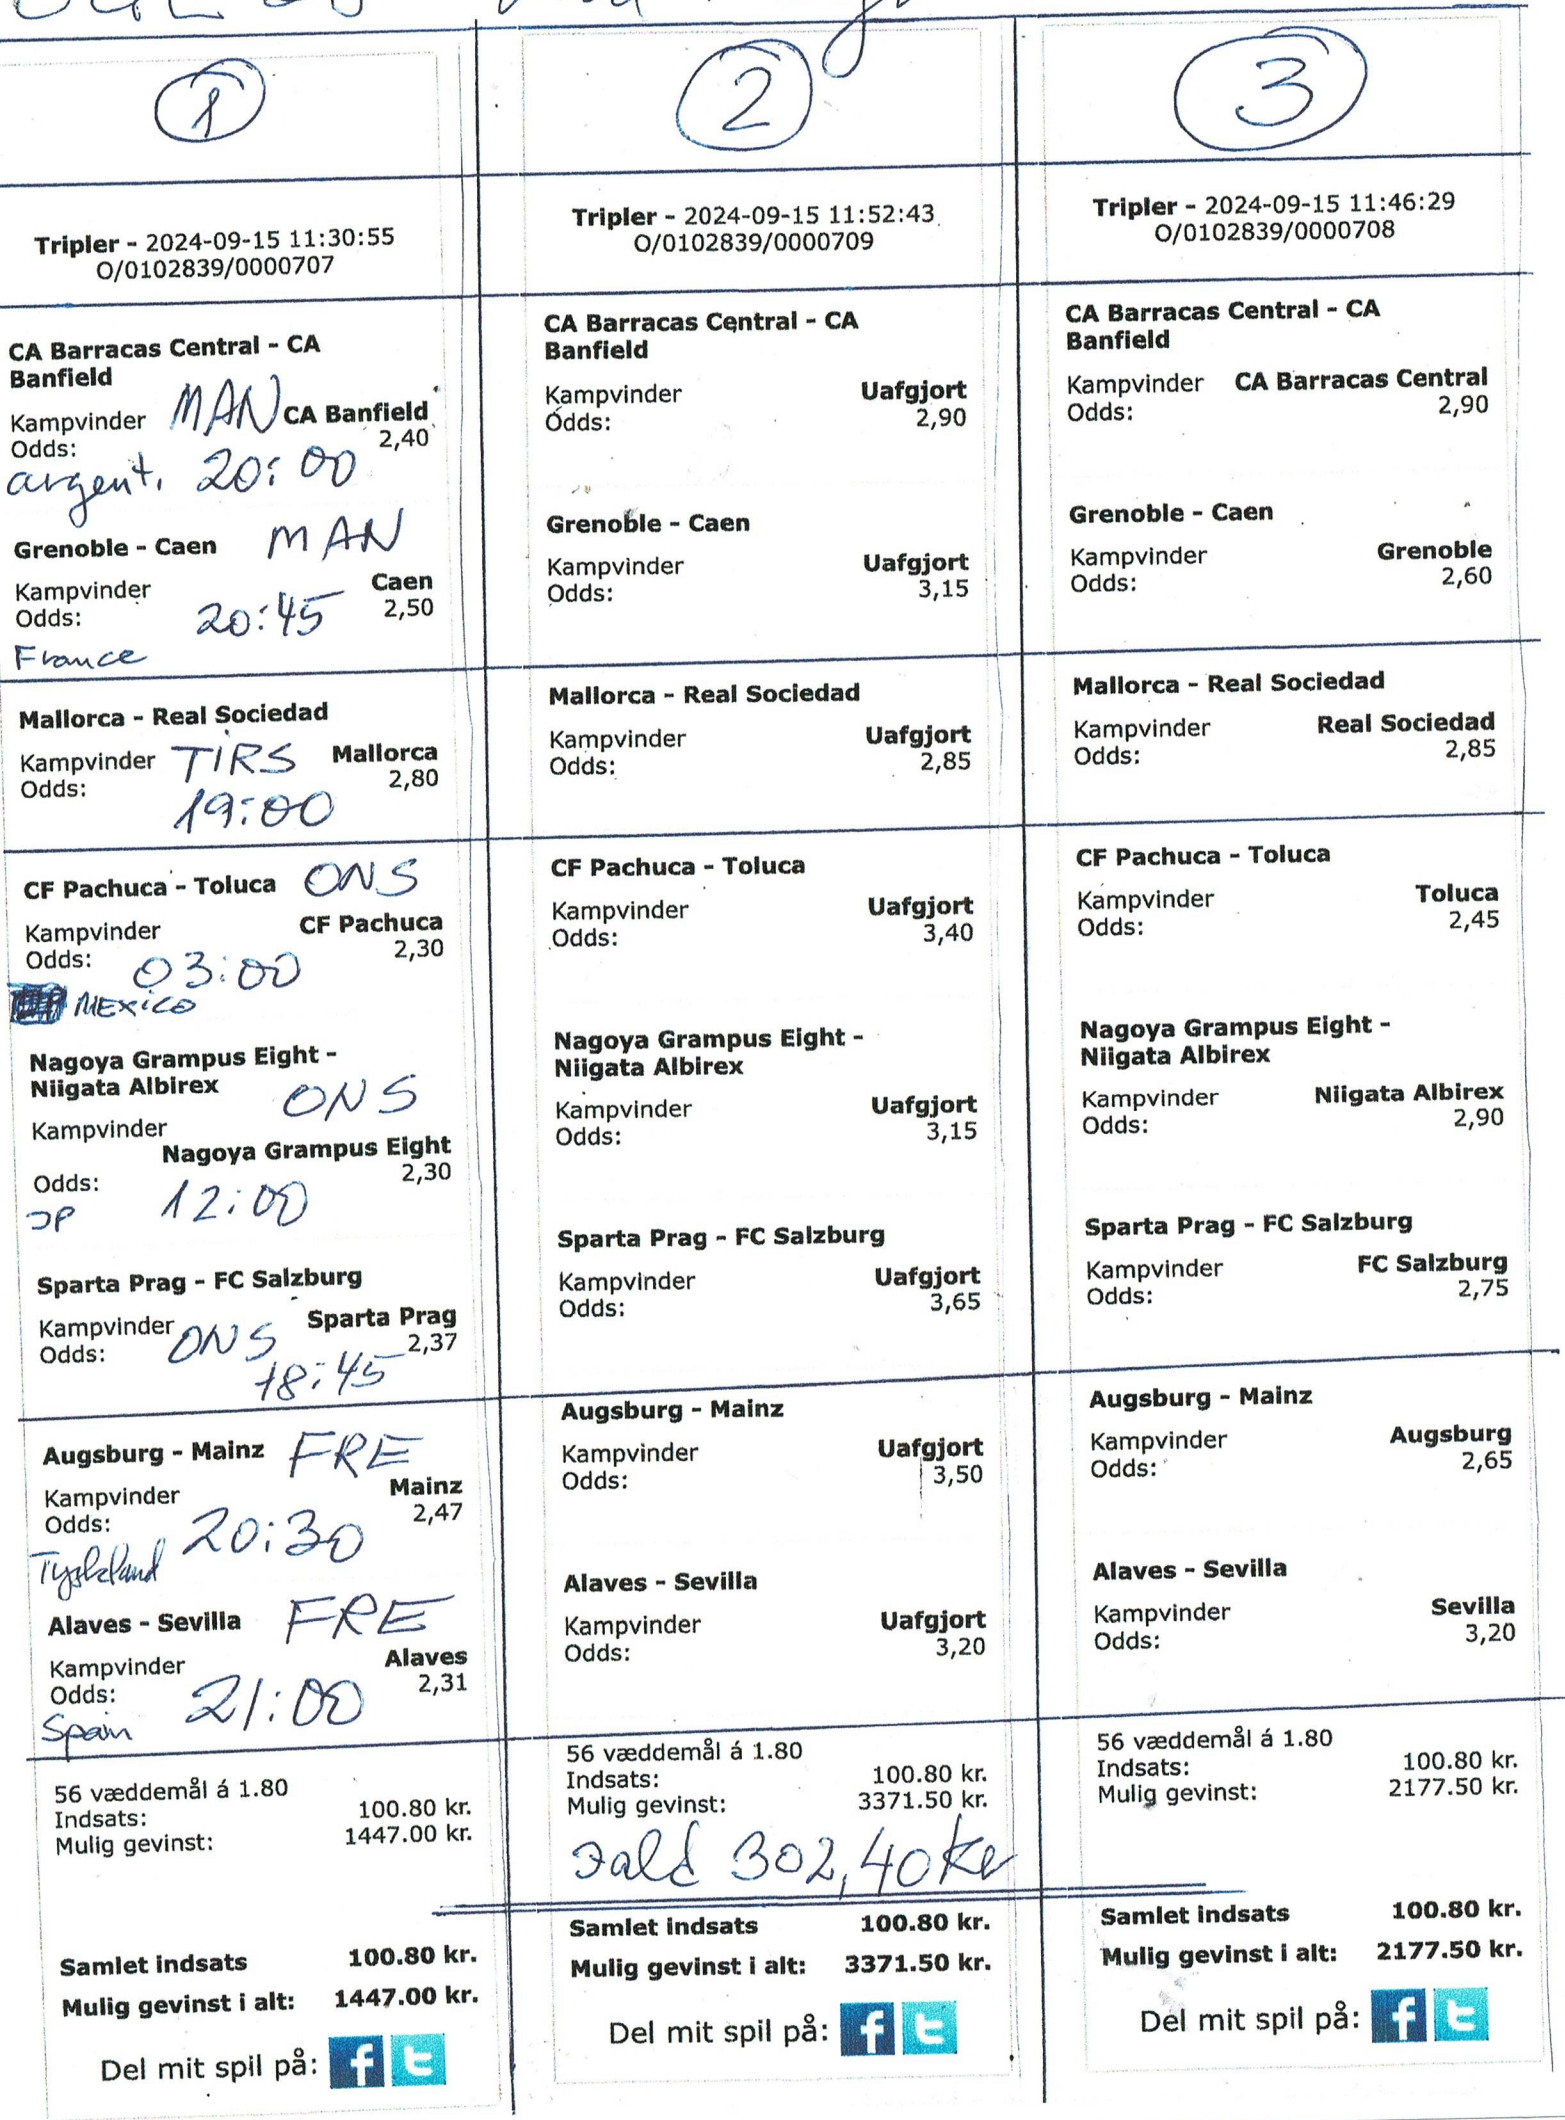 1
Tripler - 2024-09-15 11:30:55
O/0102839/0000707
CA Barracas Central - CA
Banfield
MAN
Kampvinder CA Banfield
Odds: 2,40
argent. 20:00
Grenoble - Caen MAN
Kampvinder Caen
Odds: 2,50
20:45
France
Mallorca - Real Sociedad
Kampvinder TIRS Mallorca
Odds: 2,80
19:00
CF Pachuca - Toluca ONS
Kampvinder CF Pachuca
Odds: 2,30
03:00
MEXICO
Nagoya Grampus Eight -
Niigata Albirex
ONS
Kampvinder
Nagoya Grampus Eight
Odds: 2,30
JP 12:00
Sparta Prag - FC Salzburg
Kampvinder Sparta Prag
Odds: ONS 2,37
18:45
Augsburg - Mainz FRE
Kampvinder Mainz
Odds: 2,47
20:30
Tyskland
Alaves - Sevilla FRE
Kampvinder Alaves
Odds: 2,31
21:00
Spain
56 væddemål á 1.80
Indsats: 100.80 kr.
Mulig gevinst: 1447.00 kr.
Samlet indsats 100.80 kr.
Mulig gevinst i alt: 1447.00 kr.
Del mit spil på: f t
2
Tripler - 2024-09-15 11:52:43
O/0102839/0000709
CA Barracas Central - CA
Banfield
Kampvinder Uafgjort
Odds: 2,90
Grenoble - Caen
Kampvinder Uafgjort
Odds: 3,15
Mallorca - Real Sociedad
Kampvinder Uafgjort
Odds: 2,85
CF Pachuca - Toluca
Kampvinder Uafgjort
Odds: 3,40
Nagoya Grampus Eight -
Niigata Albirex
Kampvinder Uafgjort
Odds: 3,15
Sparta Prag - FC Salzburg
Kampvinder Uafgjort
Odds: 3,65
Augsburg - Mainz
Kampvinder Uafgjort
Odds: 3,50
Alaves - Sevilla
Kampvinder Uafgjort
Odds: 3,20
56 væddemål á 1.80
Indsats: 100.80 kr.
Mulig gevinst: 3371.50 kr.
302,40 kr
Samlet indsats 100.80 kr.
Mulig gevinst i alt: 3371.50 kr.
Del mit spil på: f t
3
Tripler - 2024-09-15 11:46:29
O/0102839/0000708
CA Barracas Central - CA
Banfield
Kampvinder CA Barracas Central
Odds: 2,90
Grenoble - Caen
Kampvinder Grenoble
Odds: 2,60
Mallorca - Real Sociedad
Kampvinder Real Sociedad
Odds: 2,85
CF Pachuca - Toluca
Kampvinder Toluca
Odds: 2,45
Nagoya Grampus Eight -
Niigata Albirex
Kampvinder Niigata Albirex
Odds: 2,90
Sparta Prag - FC Salzburg
Kampvinder FC Salzburg
Odds: 2,75
Augsburg - Mainz
Kampvinder Augsburg
Odds: 2,65
Alaves - Sevilla
Kampvinder Sevilla
Odds: 3,20
56 væddemål á 1.80
Indsats: 100.80 kr.
Mulig gevinst: 2177.50 kr.
Samlet indsats 100.80 kr.
Mulig gevinst i alt: 2177.50 kr.
Del mit spil på: f t